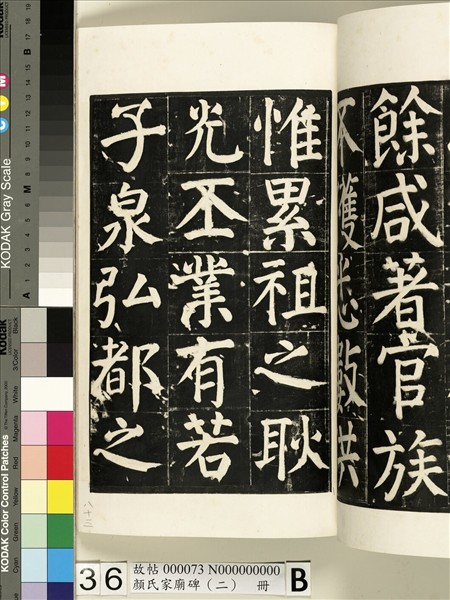 餘咸著官族
不獲悉數洪
惟累祖之耿
光丕業有若
子泉弘都之
36
故帖 000073 N000000000
顏氏家廟碑（二） 冊
B
KODAK Gray Scale
C
M
A 1 2 3 4 5 6 M 8 9 10 11 12 13 14 15 B 17 18 19
Kodak
KODAK Color Control Patches
Blue
Cyan
Green
Yellow
Red
Magenta
White
3/Color
Black